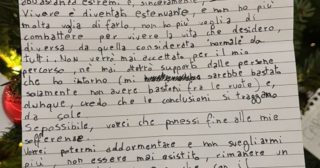 abbastanza estremi. e, sinceramente,
Vivere è diventato estenuante, e non ho più
molta voglia di farlo, non ho più voglia di
combattere per vivere la vita che desidero,
diversa da quella considerata "normale" da
tutti. Non verrò mai accettato per il mio
percorso, né mai sarò superb dalle persone
che ho intorno (mi sarebbe bastato
solamente non avere bastoni fra le ruote) e,
dunque, credo che le conclusioni si traggano
da sole.
Se possibile, vorrei che ponessi fine alle mie
sofferenze.
Vorrei potermi addormentare e non svegliarmi
più, non essere mai esistito, rimanere un